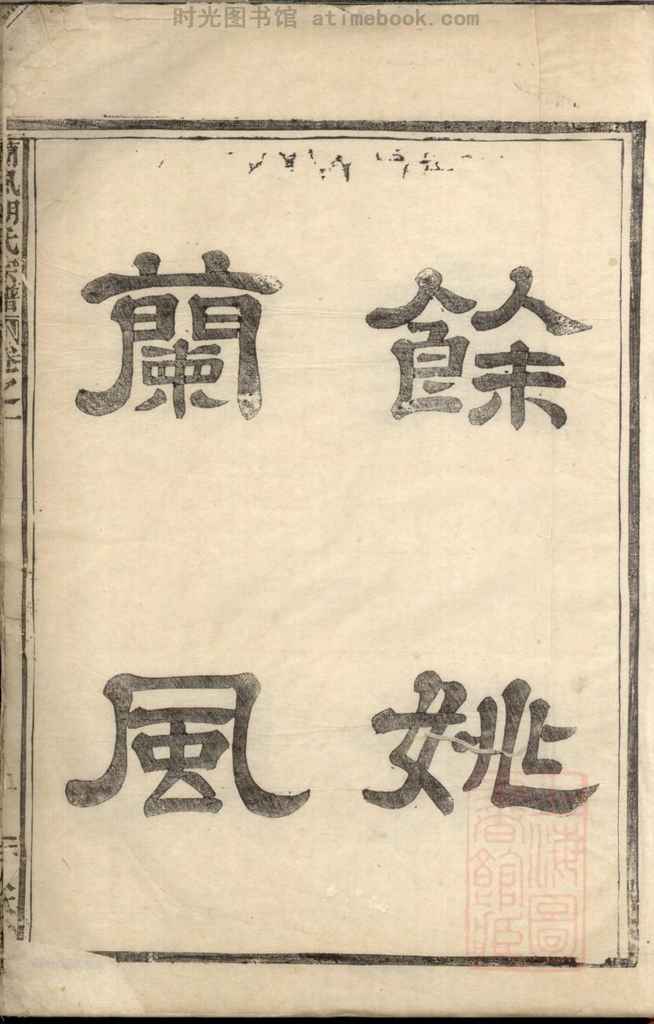 时光图书馆 atimebook.com
餘姚
蘭風
風胡氏宗譜